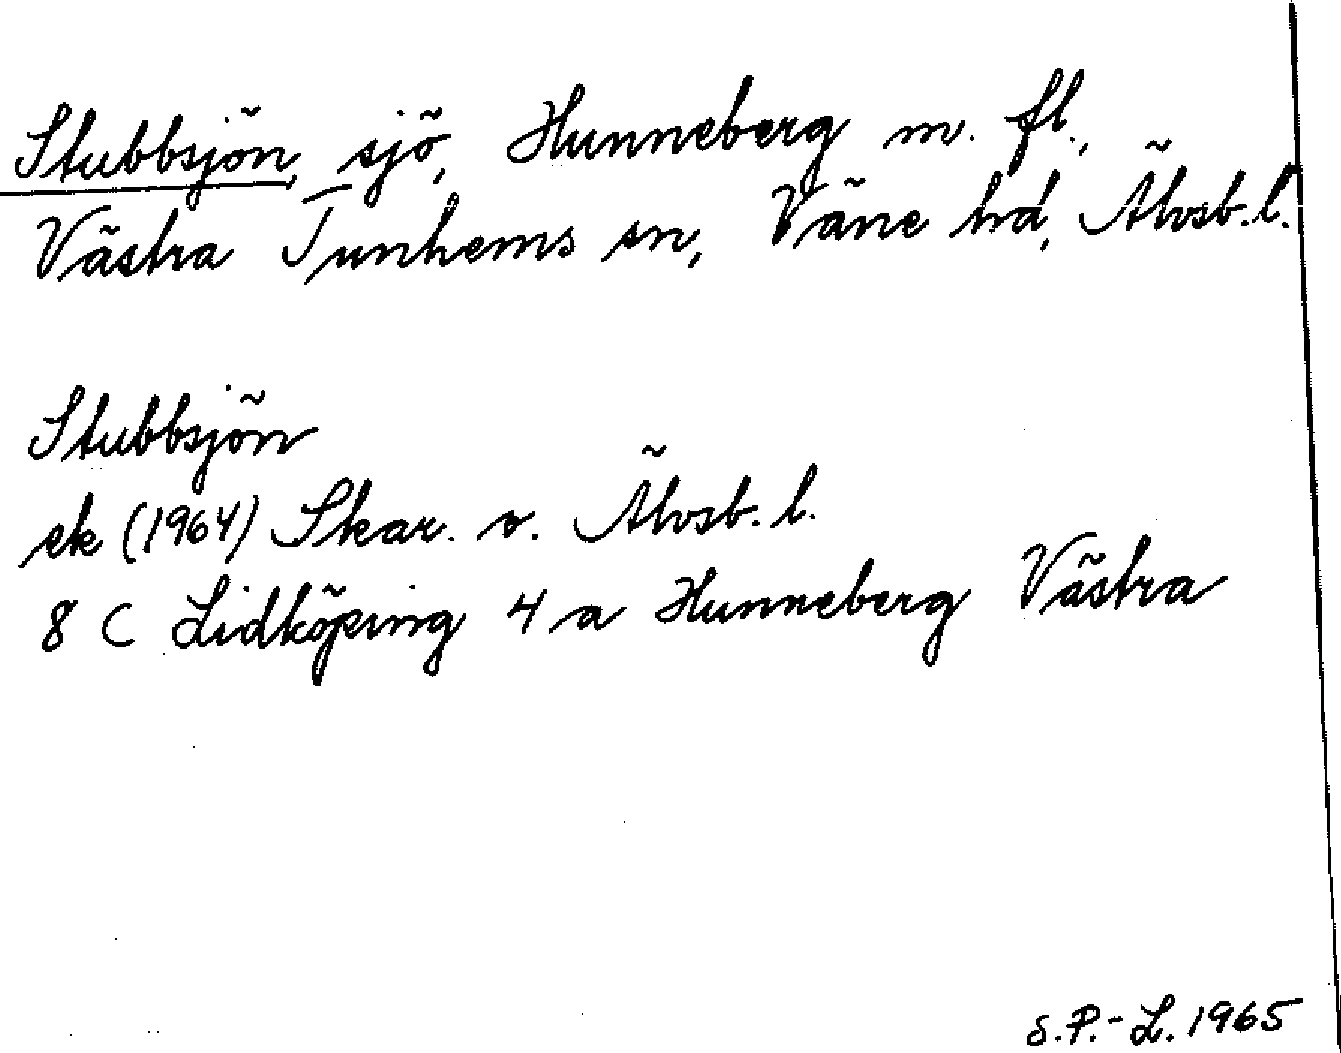 Stubbsjön, sjö, Hunneberg m. fl.,
Västra Tunhems sn, Väne hd, Älvsb. l.
Stubbsjön
ek (1964) Skar. o. Älvsb. l.
8 C Lidköping 4 a Hunneberg Västra
S.P.-L. 1965